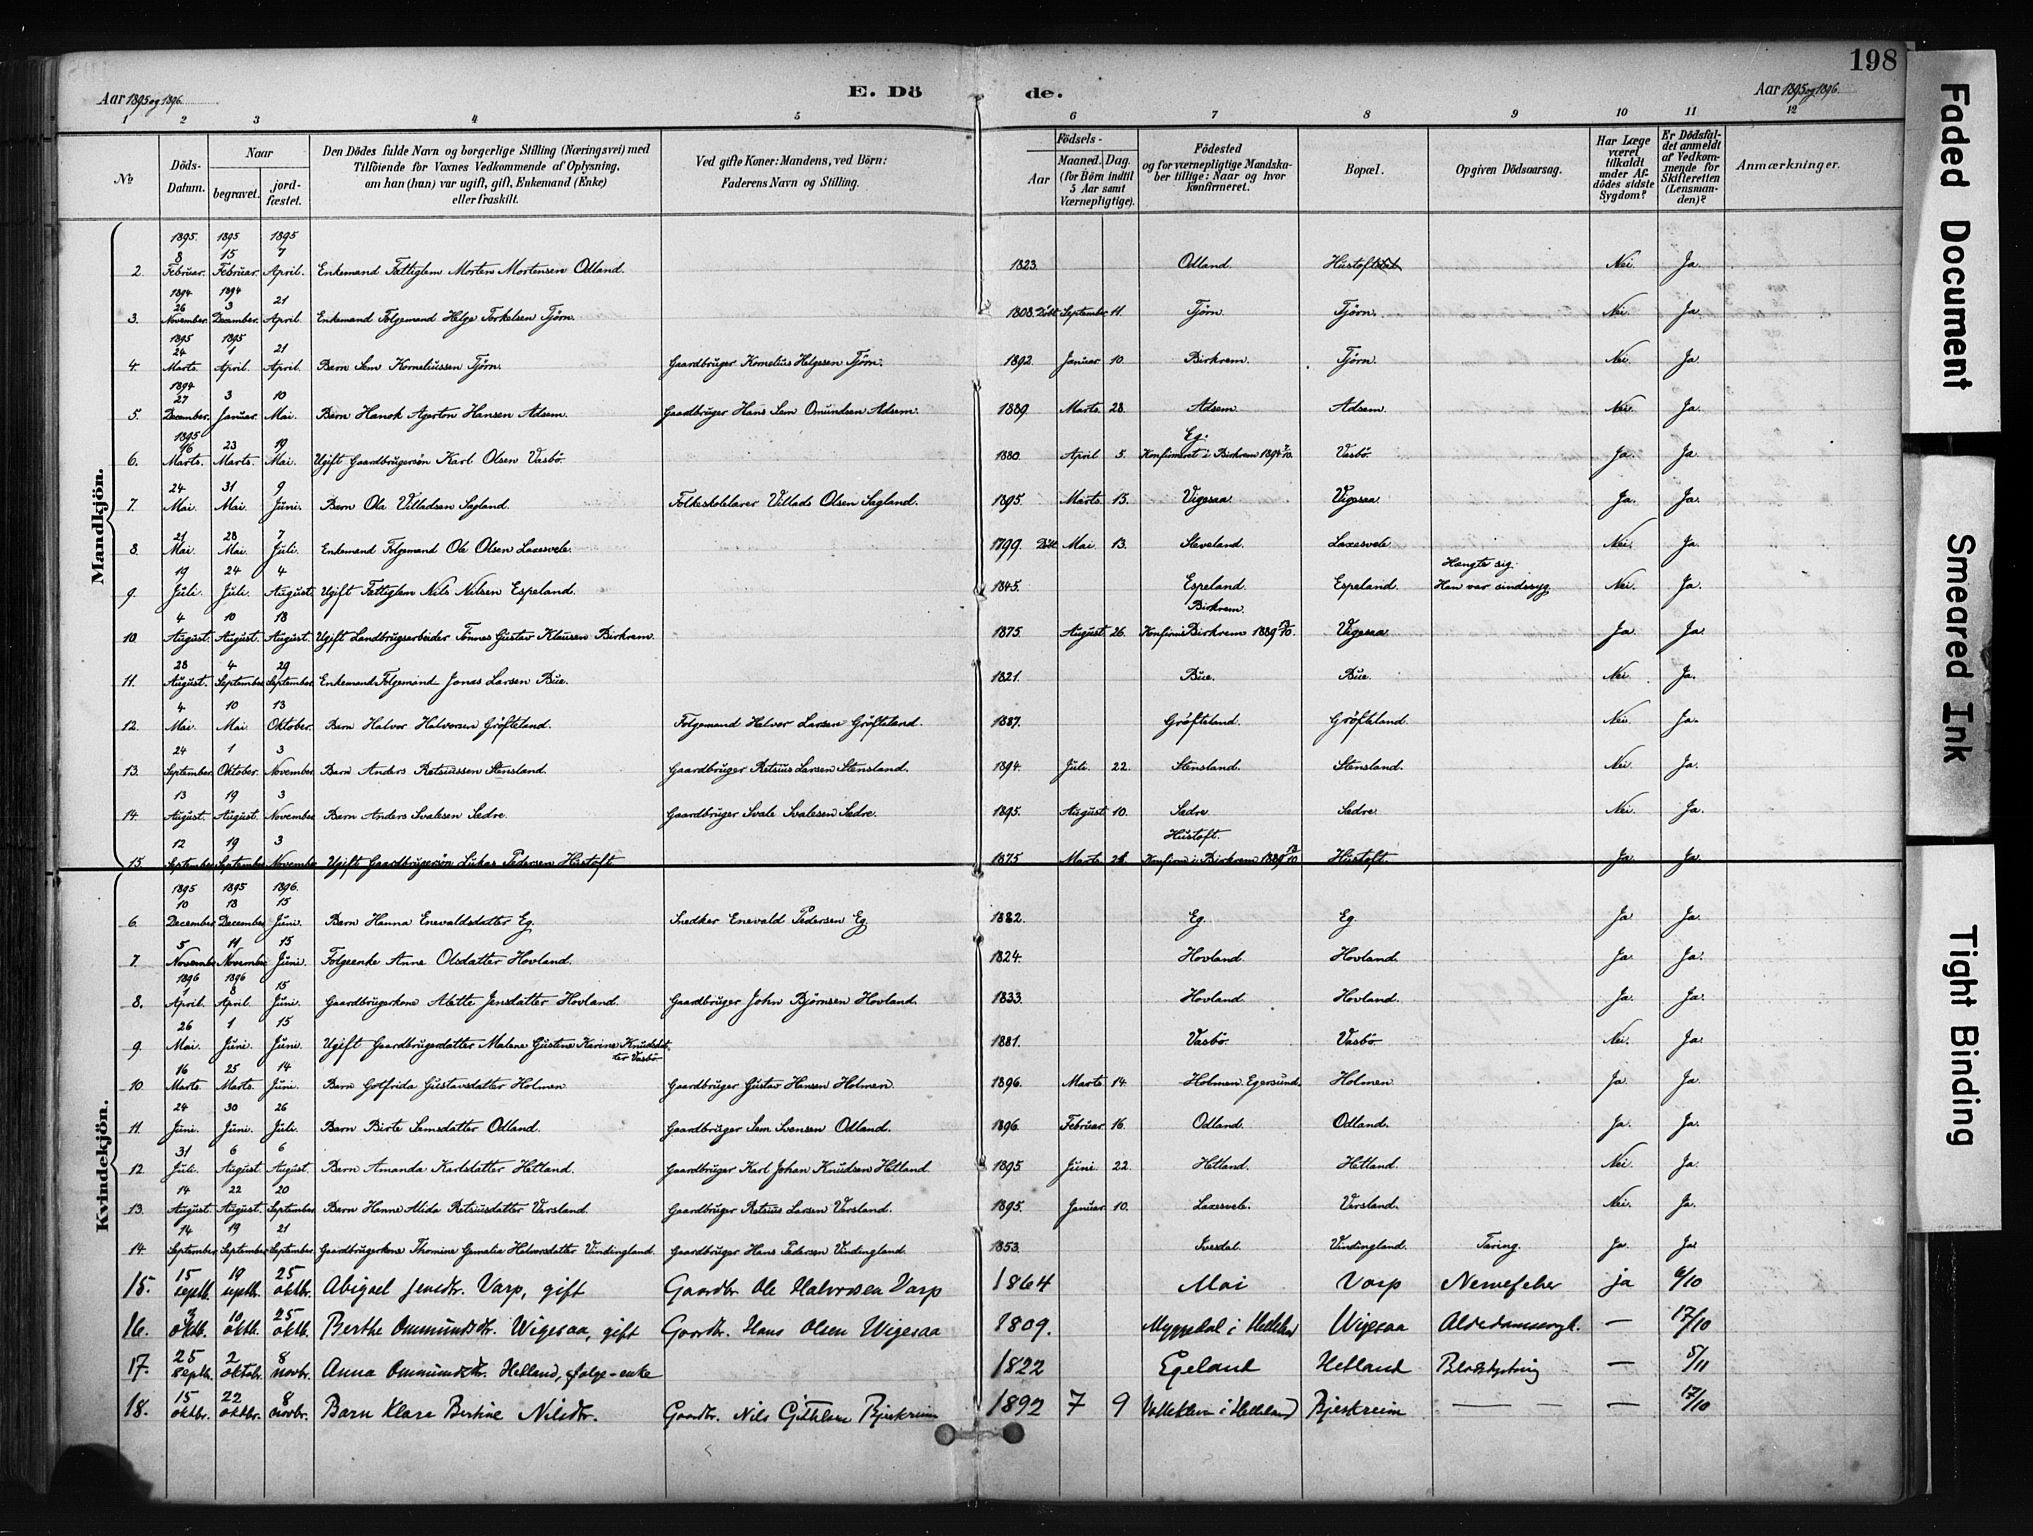 198
Aar 1895 og 1896.
E. Dö de.
Aar 1895 og 1896.
1 2 3 4 5 6 7 8 9 10 11 12
No
Döds-Datum.
Naar begravet. jordfæstet.
Den Dödes fulde Navn og borgerlige Stilling (Næringsvei) med Tilföiende for Voxnes Vedkommende af Oplysning, om han (hun) var ugift, gift, Enkemand (Enke) eller fraskilt.
Ved gifte Koner: Mandens, ved Börn: Faderens Navn og Stilling.
Födsels-
Aar
Maaned. Dag. (for Börn indtil 5 Aar samt Værnepligtige).
Födested og for værnepligtige Mandskaber tillige: Naar og hvor konfirmeret.
Bopæl.
Opgiven Dödsaarsag.
Har Læge været tilkaldt under Afdödes sidste Sygdom?
Er Dödsfaldet anmeldt af Vedkommende for Skifteretten (Lensmanden)?
Anmærkninger.
Mandkjön.
1895. 1895. 1895
8 15 7
2. Februar. Februar. April. Enkemand Fattiglem Morten Mortensen Odland. 1823. Odland Hustoft Nei. Ja.
1894 1894
26 3 21
3. November. December. April. Enkemand Folgemand Helge Torkelsen Tjørn. 1808. Döbt September 11. Tjørn. Tjørn. Nei. Ja.
1895 1895
24 1 21
4. Marts. April. April. Barn Sem Korneliussen Tjørn. Gaardbruger Kornelius Helgesen Tjørn. 1892. Januar 10. Birkrem. Tjørn. Nei. Ja.
1894
27 3 10
5. December. Januar. Mai. Barn Hanok Agerton Hansen Adsem. Gaardbruger Hans Sem Omundsen Adsem. 1889. Marts 28. Adsem. Adsem. Nei. Ja.
1895
16 23 19 Eg.
6. Marts. Marts. Mai. Ugift Gaardbrugersøn Karl Olsen Vasbö. 1880. April 5. Konfirmeret i Birkrem 1894 Vasbö. Ja. Ja.
24 31 9
7. Mai. Mai. Juni. Barn Ola Villadsen Sagland. Folkeskolelærer Villads Olsen Sagland. 1895. Marts. 15. Vigesaa. Vigesaa. Ja. Ja.
21 28 7
8. Mai. Mai. Juli. Enkemand Folgemand Ole Olsen Laxesvele. 1799 Döbt Mai 13. Steveland. Laxesvele Nei. Ja.
19 24 4 Hængte sig.
9. Juli. Juli. August. Ugift Fattiglem Nils Nilsen Espeland. 1845. Espeland. Espeland. Han var sindssyg. Nei. Ja.
4 10 18 Birkrem.
10. August. August. August. Ugift Landbrugsarbeider Tönnes Gustav Klausen Birkrem. 1875. August 26. Konfirm i Birkrem 1889 Vigesaa. Ja. Ja.
28 4 29
11. August. September. September. Enkemand Folgemand Jonas Larsen Bue. 1821. Bue. Bue. Nei. Ja.
4 10 13
12. Mai. Mai. Oktober. Barn Halvor Halvorsen Gröfteland. Folgemand Halvor Larsen Gröfteland. 1887. Gröfteland. Gröfteland. Nei. Ja.
24 1 3
13. September. Oktober. November. Barn Anders Retsiussen Stensland. Gaardbruger Retsius Larsen Stensland. 1894. Juli. 22. Stensland. Stensland. Nei. Ja.
13 19 3
14. August. August. November. Barn Anders Svalesen Sædre. Gaardbruger Svale Svalesen Sædre. 1895. August 10. Sædre. Sædre. Nei. Ja.
12 19 3 Hustoft.
15. September. September. November. Ugift Gaardbrugersøn Lukas Pedersen Hustoft. 1875. Marts Konfirm i Birkrem 1889 Hustoft. Ja. Ja.
Kvindekjön.
1895 1895 1896.
10 18 15
6. December. December. Juni. Barn Hanna Enevaldsdatter Eg. Snedker Enevald Pedersen Eg 1882. Eg. Eg. Ja Ja.
5 11 15
7. November. November. Juni. Folgeenke Anne Olsdatter Hovland. 1824. Hovland. Hovland. Ja. Ja.
1896 1896
1 8 15
8. April. April. Juni. Gaardbrugerkone Alette Jensdatter Hovland. Gaardbruger John Bjørnsen Hovland. 1833. Hovland. Hovland. Ja. Ja.
26 1 15
9 Mai. Juni. Juni. Ugift Gaardbrugerdatter Malene Gustine Karine Knudsdat- 1881. Vasbö. Vasbö. Nei. Ja.
ter Vasbö
16 25 14
10 Marts. Marts. Juni. Barn Gotfrida Gustavsdatter Holmen Gaardbruger Gustav Hansen Holmen. 1896. Marts. 14. Holmen Egersund. Holmen Ja. Ja.
24 30 26
11. Juni. Juni. Juli. Barn Birte Semsdatter Odland. Gaardbruger Sem Svensen Odland. 1896. Februar 16. Odland. Odland. Ja. Ja.
31 6 6
12. Juli. August. August. Barn Amanda Karlsdatter Hetland. Gaardbruger Karl Johan Knudsen Hetland 1895 Juni 22. Hetland. Hetland. Nei. Ja.
14 22 20
13. August. August. September. Barn Hanne Alida Retsiusdatter Versland. Gaardbruger Retsius Larsen Versland. 1895. Januar. 10. Laxesvele. Versland. Nei. Ja.
14 19 21
14. September. September. September. Gaardbrugerkone Thomine Gemalia Halvorsdatter Vindingland. Gaardbruger Hans Pedersen Vindingland. 1853. Ivesdal. Vindingland. Tæring. Ja. Ja.
15 19 25
15. septb. septb. oktbr. Abigael Jensdtr. Varp, gift Gaardbr. Ole Halvorsen Varp 1864 Moi Varp Nervefeber ja 6/10
3 10 25
16. oktb. oktb. oktb. Berthe Ommundsdtr. Wigesaa, gift Gaardbr. Hans Olsen Wigesaa 1809. i Helleland Wigesaa — 17/10
25 2 8
17. septb. oktobr. novbr. Anna Ommundsdtr. Hetland, følge-enke 1822 Egeland Hetland Blodstyrtning — 5/11
15 22 8
18. oktbr. oktbr. novbr. Barn Klara Bertine Nilsdtr. Gaardbr. Nils Bjerkreim 1892 7 9 i Helleland Bjerkreim — — — — 17/10
Faded Document
Smeared Ink
Tight Binding